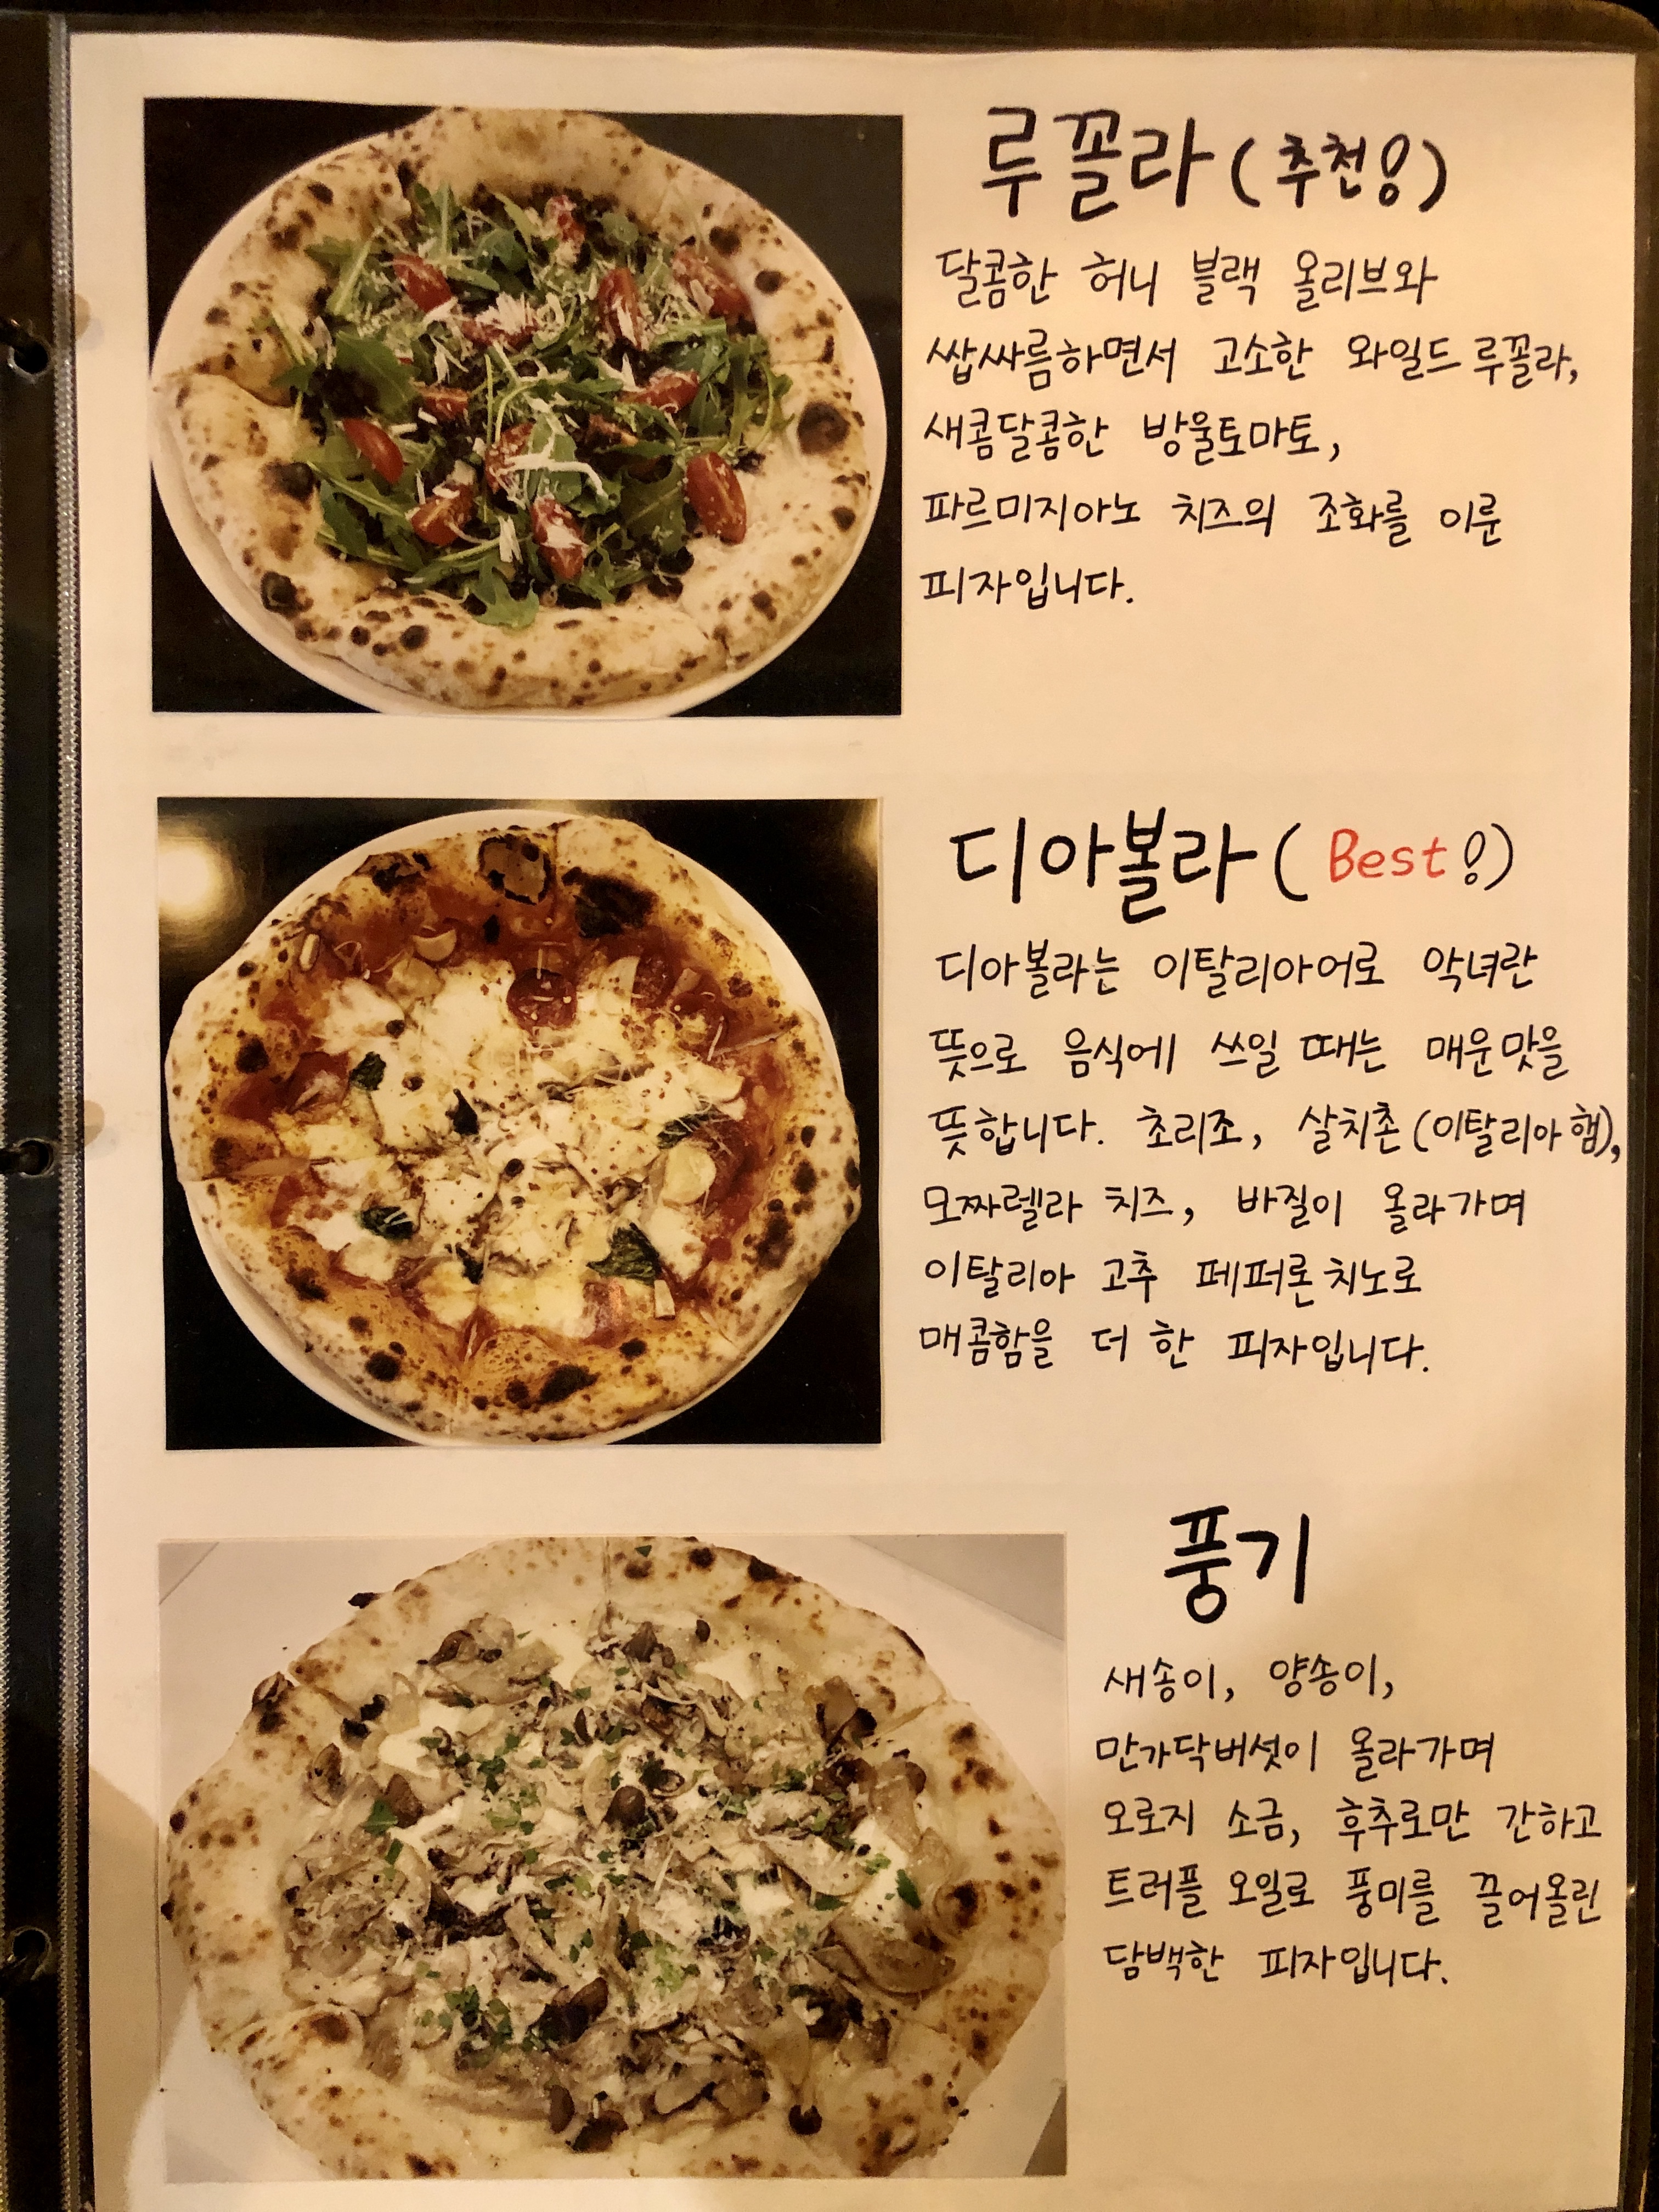 루꼴라 (추천!)
달콤한 허니 블랙 올리브와
쌉싸름하면서 고소한 와일드 루꼴라,
새콤달콤한 방울토마토,
파르미지아노 치즈의 조화를 이룬
피자입니다.
디아볼라 (Best!)
디아볼라는 이탈리아어로 악녀란
뜻으로 음식에 쓰일 때는 매운맛을
뜻합니다. 초리조, 살치촌 (이탈리아 햄),
모짜렐라 치즈, 바질이 올라가며
이탈리아 고추 페퍼론치노로
매콤함을 더 한 피자입니다.
풍기
새송이, 양송이,
만가닥버섯이 올라가며
오로지 소금, 후추로만 간하고
트러플 오일로 풍미를 끌어올린
담백한 피자입니다.